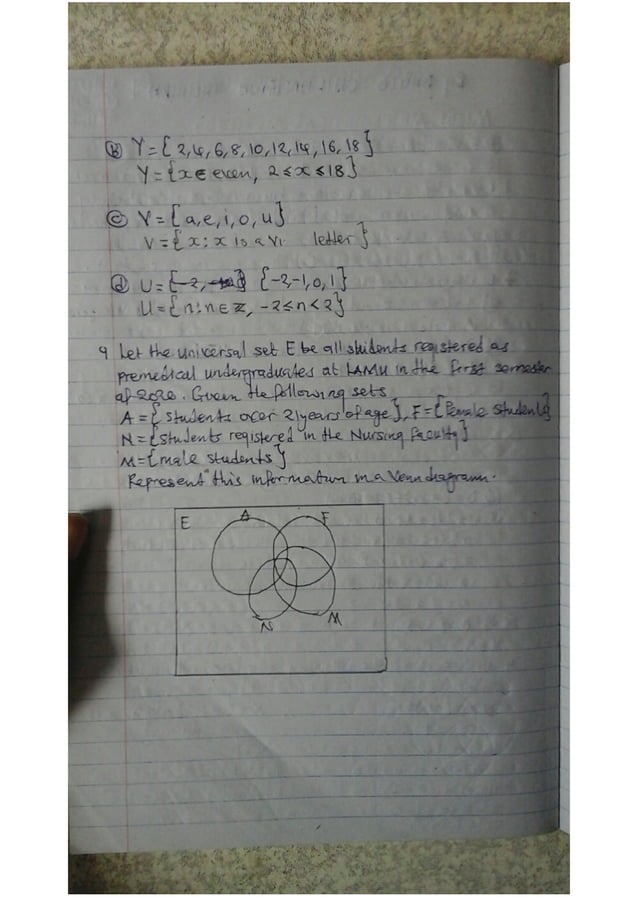 (b) Y = { 2,4,6,8,10,12,14,16,18}
Y = {x ∈ even, 2 ≤ x ≤ 18}
(c) V = {a,e,i,o,u}
V = { x : x is a letter }
(d) U = {-2, {-2,-1,0,1}
U = {n : n ∈ Z, -2 ≤ n < 2}
9 Let the universal set E be all students registered as
premedical undergraduates at LAMU in the first semester
of 2020. Given the following sets
A = { students over 21 years of age }, F = {female students}
N = {students registered in the Nursing Faculty}
M = {male students }
Represent this information in a Venn diagram.
E A F
N M